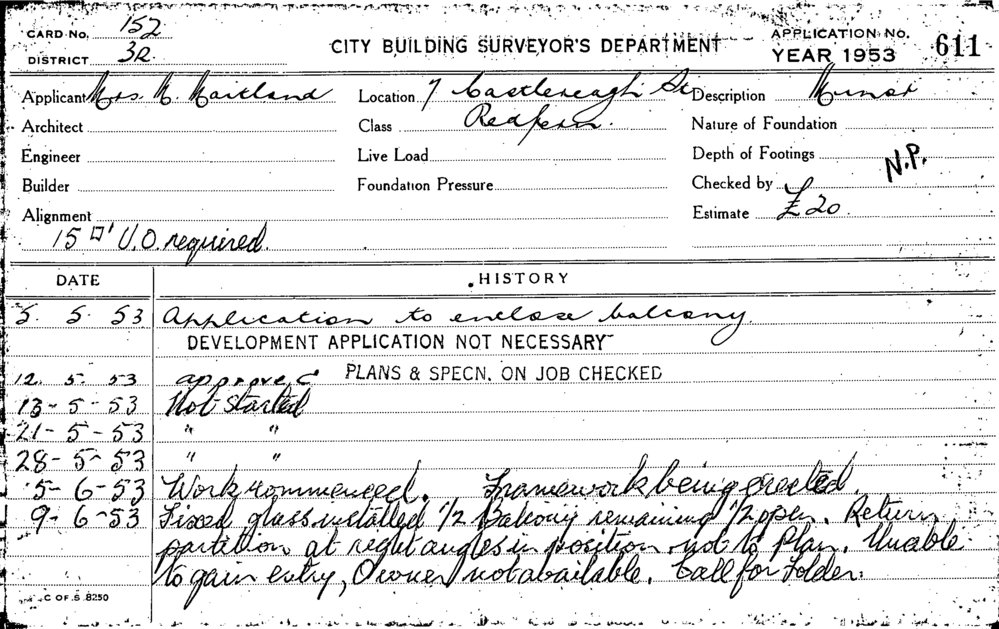 CARD No. 152
DISTRICT 32
CITY BUILDING SURVEYOR'S DEPARTMENT
APPLICATION No. 611
YEAR 1953
Applicant Mrs. M Maitland
Location 7 Castlereagh St
Description Minor
Architect
Class Redfern.
Nature of Foundation
Engineer
Live Load
Depth of Footings N.P.
Builder
Foundation Pressure
Checked by
Alignment
Estimate £20.
15 □' U.O. required.
DATE HISTORY
5. 5. 53 Application to enclose balcony
DEVELOPMENT APPLICATION NOT NECESSARY
12. 5. 53 approved PLANS & SPECN. ON JOB CHECKED
13-5-53 Not started
21-5-53 " "
28-5-53 " "
5-6-53 Work commenced. Framework being erected.
9-6-53 Fixed glass installed 1/2 Balcony remaining 1/2 open. Return
partition at right angles in position not to Plan. Unable
to gain entry, Owner not available. Call for Folder.
C OF S 8250